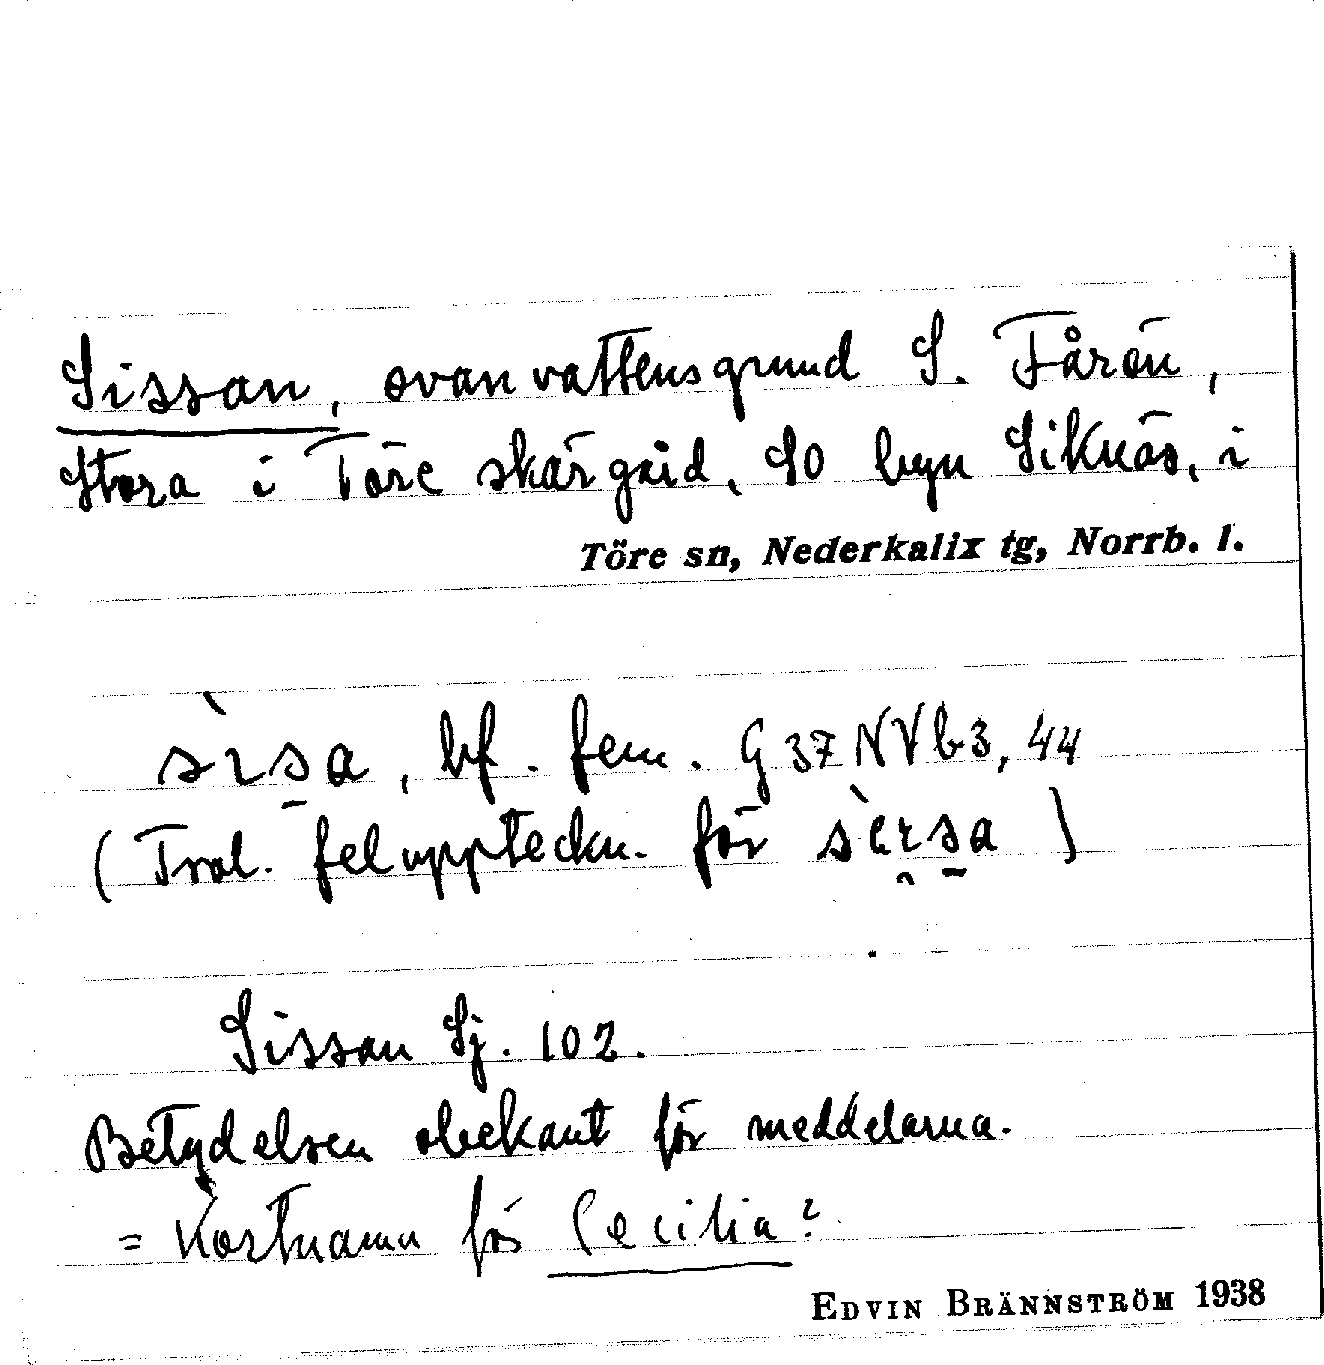 Sissan, ovanvattensgrund S. Fårön,
Stora i Töre skärgård, SO byn Siknäs, i
Töre sn, Nederkalix tg, Norrb. l.
sɩ̀s̠a, bf. fem. G 37 NVb3, 44
(Trol. feluppteckn. för )
Sissan Sj. 102.
Betydelsen obekant för meddelarna.
= Kortnamn för Cecilia?
EDVIN BRÄNNSTRÖM 1938